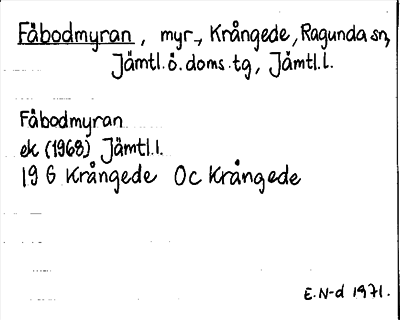 Fäbodmyran, myr., Krångede, Ragunda sn,
Jämtl. ö. doms. tg, Jämtl. l.
Fäbodmyran
ek (1968) Jämtl. l.
19 G Krångede Oc Krångede
E. N-d 1971.